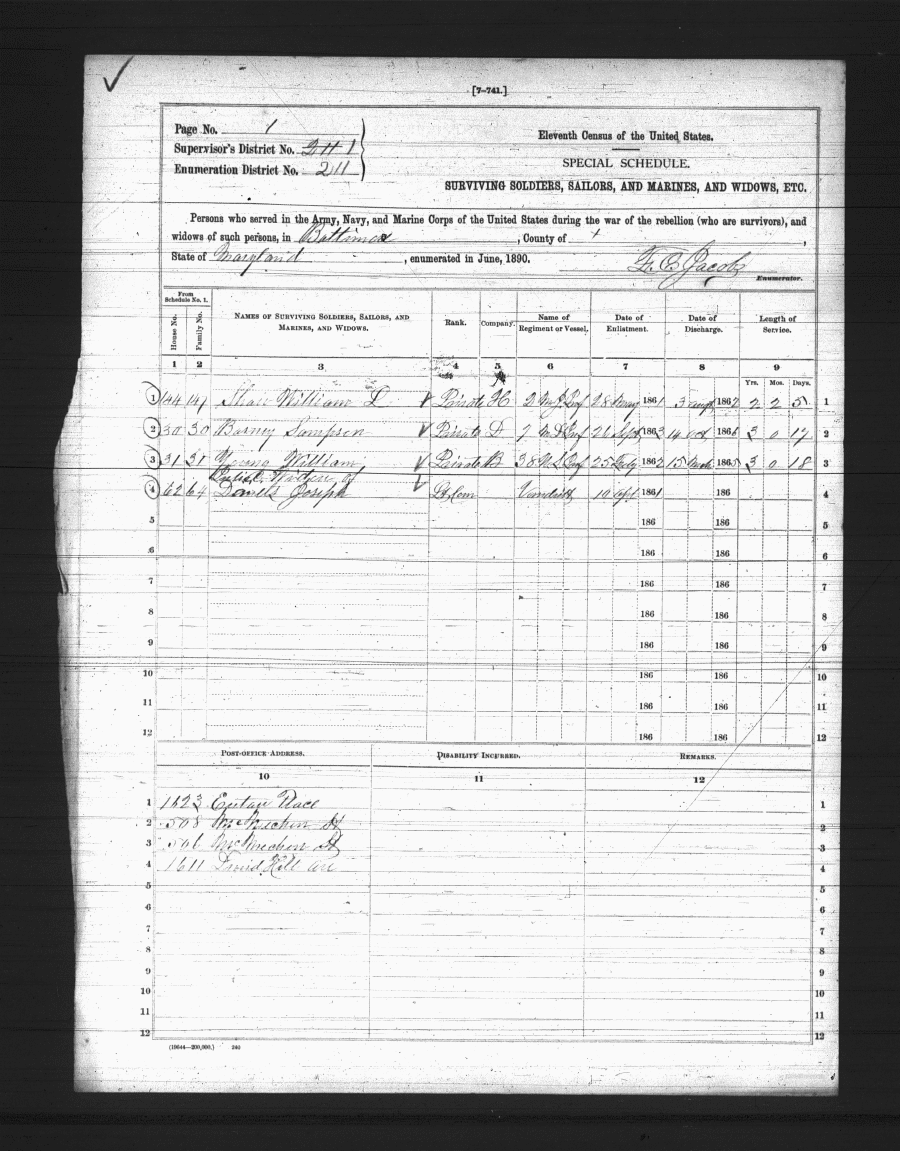 [7-741.]
Page No. 1
Supervisor's District No. 211 1
Enumeration District No. 211
Eleventh Census of the United States.
SPECIAL SCHEDULE.
SURVIVING SOLDIERS, SAILORS, AND MARINES, AND WIDOWS, ETC.
Persons who served in the Army, Navy, and Marine Corps of the United States during the war of the rebellion (who are survivors), and
widows of such persons, in Baltimore, County of ,
State of Maryland, enumerated in June, 1890. F. C. Jacob
Enumerator.
From Schedule No. 1.
House No. Family No. NAMES OF SURVIVING SOLDIERS, SAILORS, AND MARINES, AND WIDOWS. Rank. Company. Name of Regiment or Vessel. Date of Enlistment. Date of Discharge. Length of Service.
1 2 3 4 5 6 7 8 9
Yrs. Mos. Days.
1 William D Private H 2 28 May 1861 3 Aug 186 2 2 5 1
2 30 30 Barney Sampson Private D 7 Sept 186 14 Oct 186 3 0 17 2
3 31 31 Young William Private B 38 25 186 15 186 3 0 18 3
Widow of
4 62 64 Joseph 10 1861 186 4
5 186 186 5
6 186 186 6
7 186 186 7
8 186 186 8
9 186 186 9
10 186 186 10
11 186 186 11
12 186 186 12
POST-OFFICE ADDRESS. DISABILITY INCURRED. REMARKS.
10 11 12
1 1623 Eutaw Place 1
2 508 McMechen St 2
3 506 McMechen St 3
4 1611 Druid Hill Ave 4
5 5
6 6
7 7
8 8
9 9
10 10
11 11
12 12
(19644—200,000.) 240